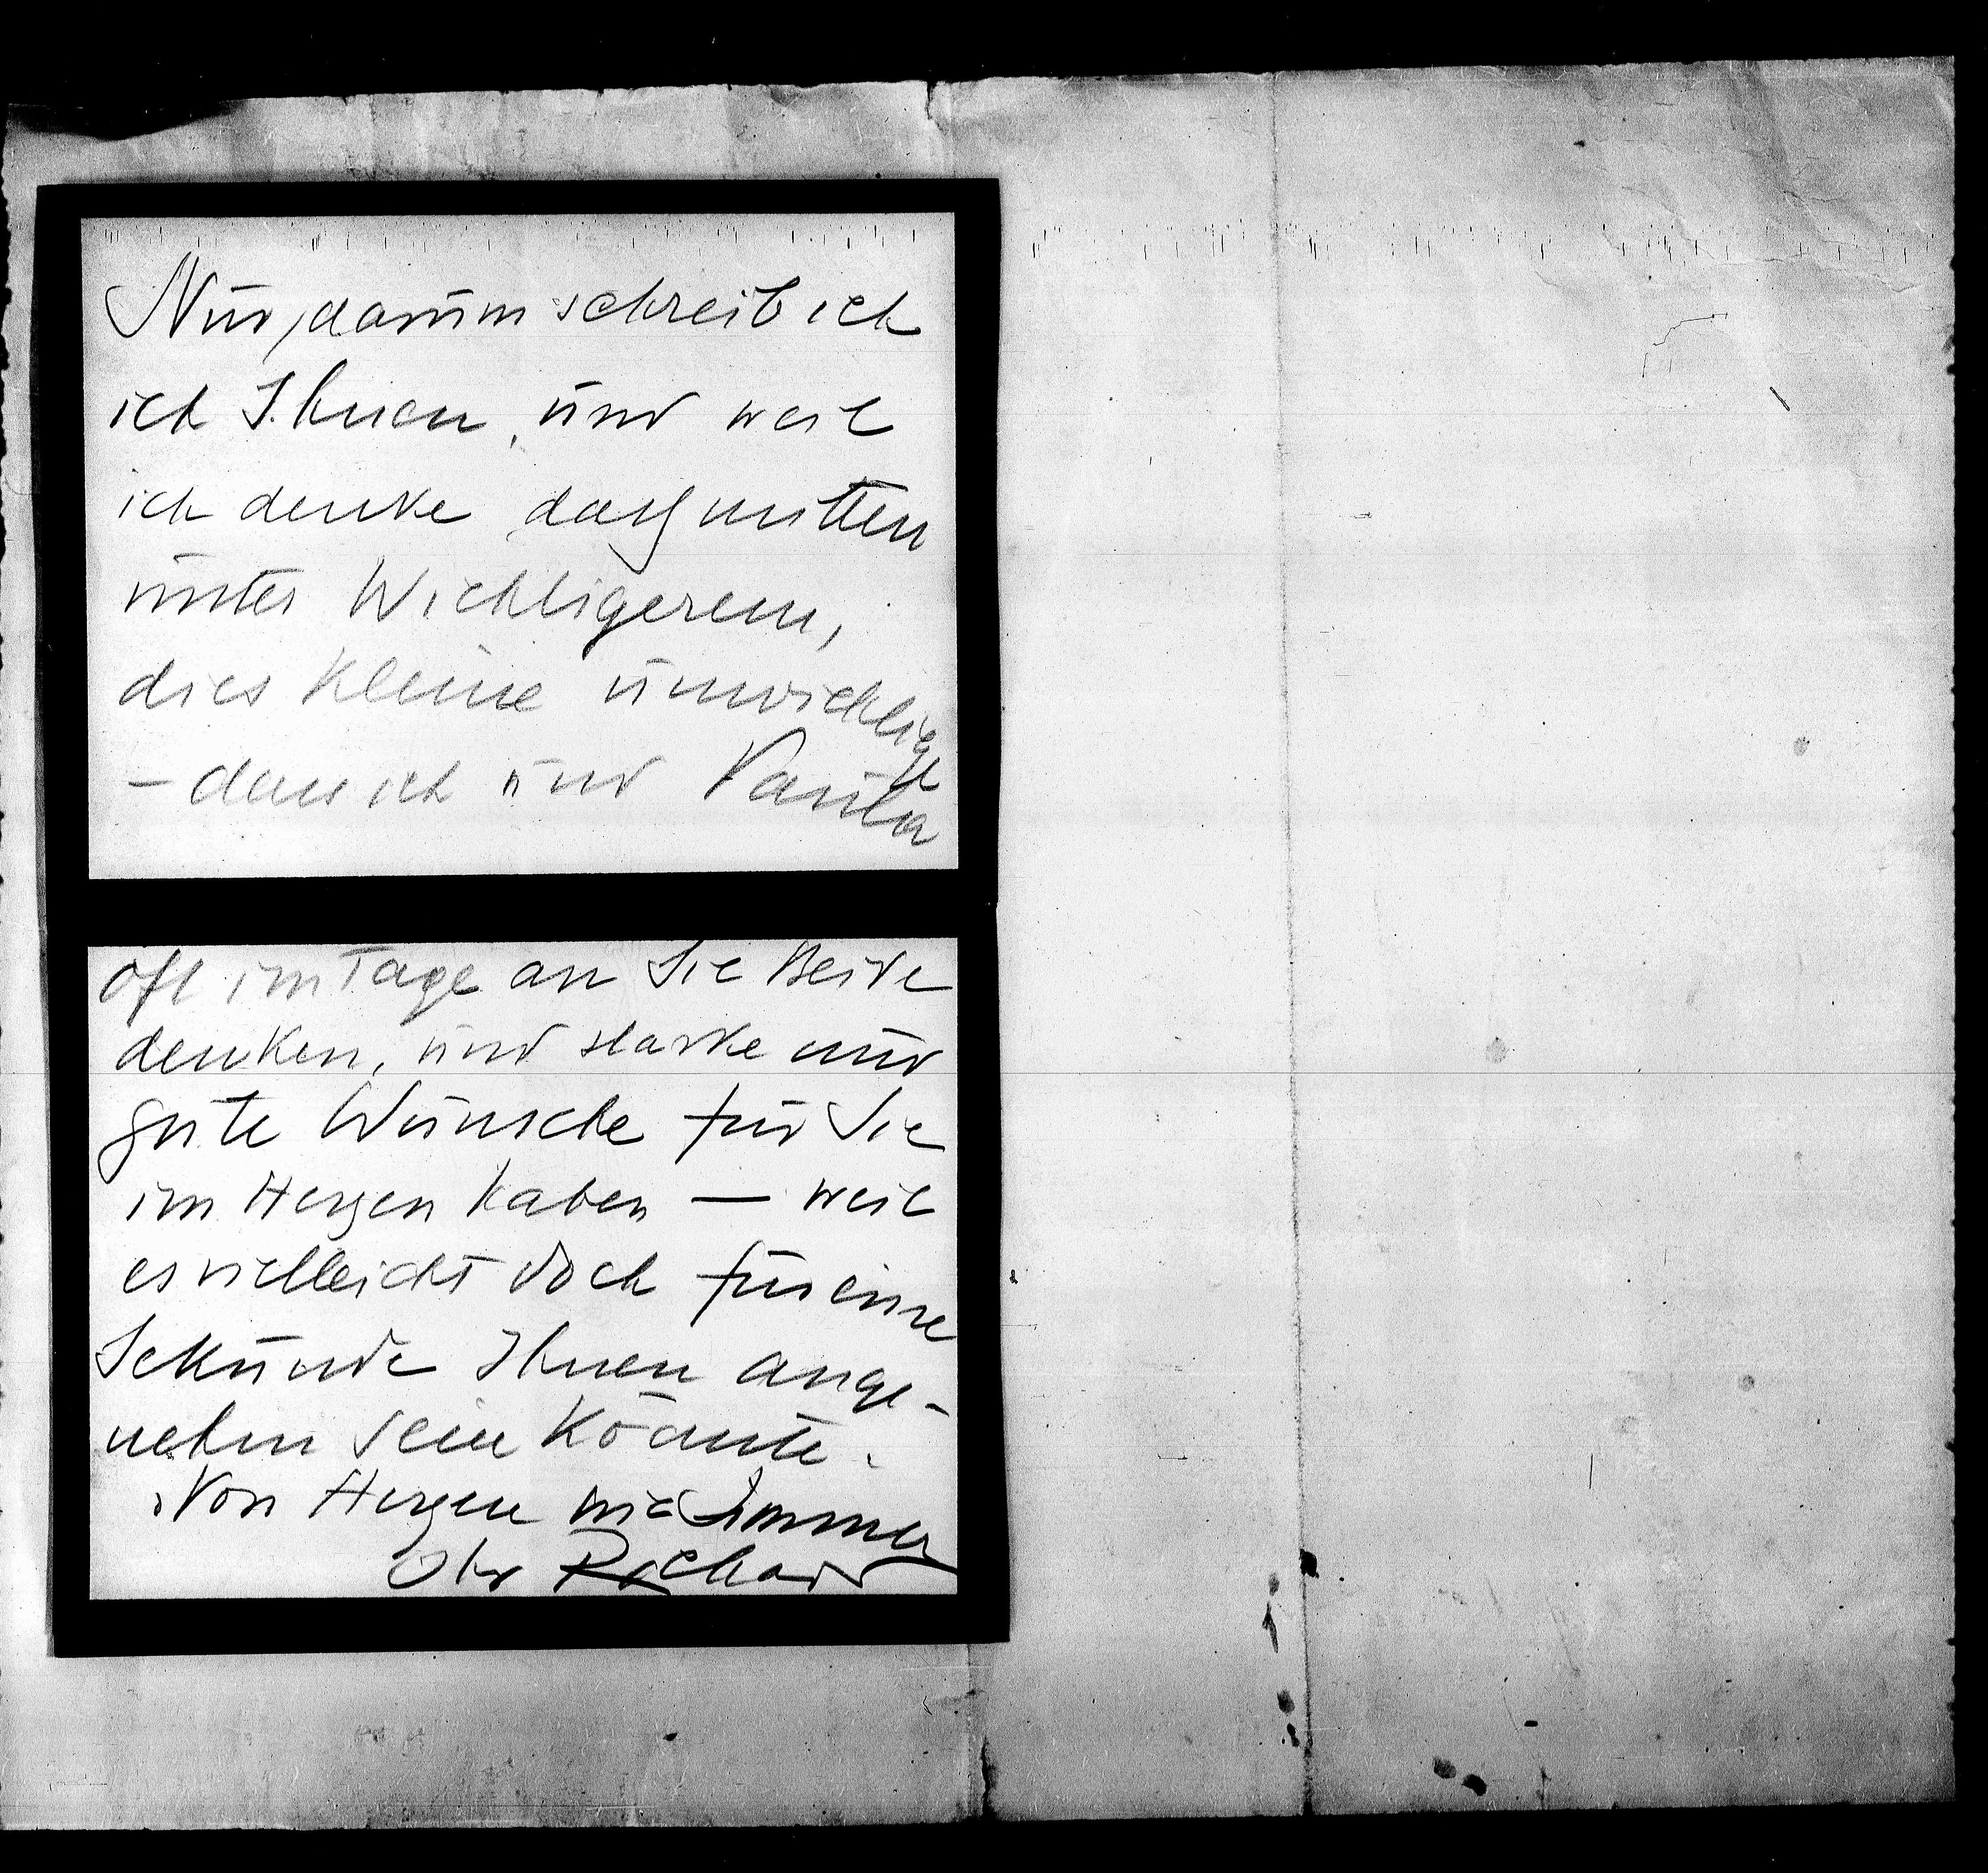 Nur darum schreib ich
ich Ihnen, und weil
ich denke dass mitten
unter Wichtigerem,
dies kleine unwichtige
– dass ich und Paula
oft im Tage an Sie Beide
denken, und starke und
gute Wünsche für Sie
im Herzen haben — weil
es vielleicht doch für eine
Sekunde Ihnen ange-
nehm sein könnte.
Von Herzen wie immer
Ihr Richard